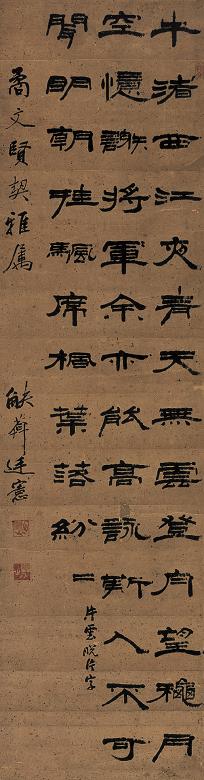 牛渚西江夜青天無雲登舟望龝月
空憶謝將軍余亦能高詠斯人不可
聞明朝挂颿席楓葉落紛二
片雲脫片字
文賢契雅屬
廷憲